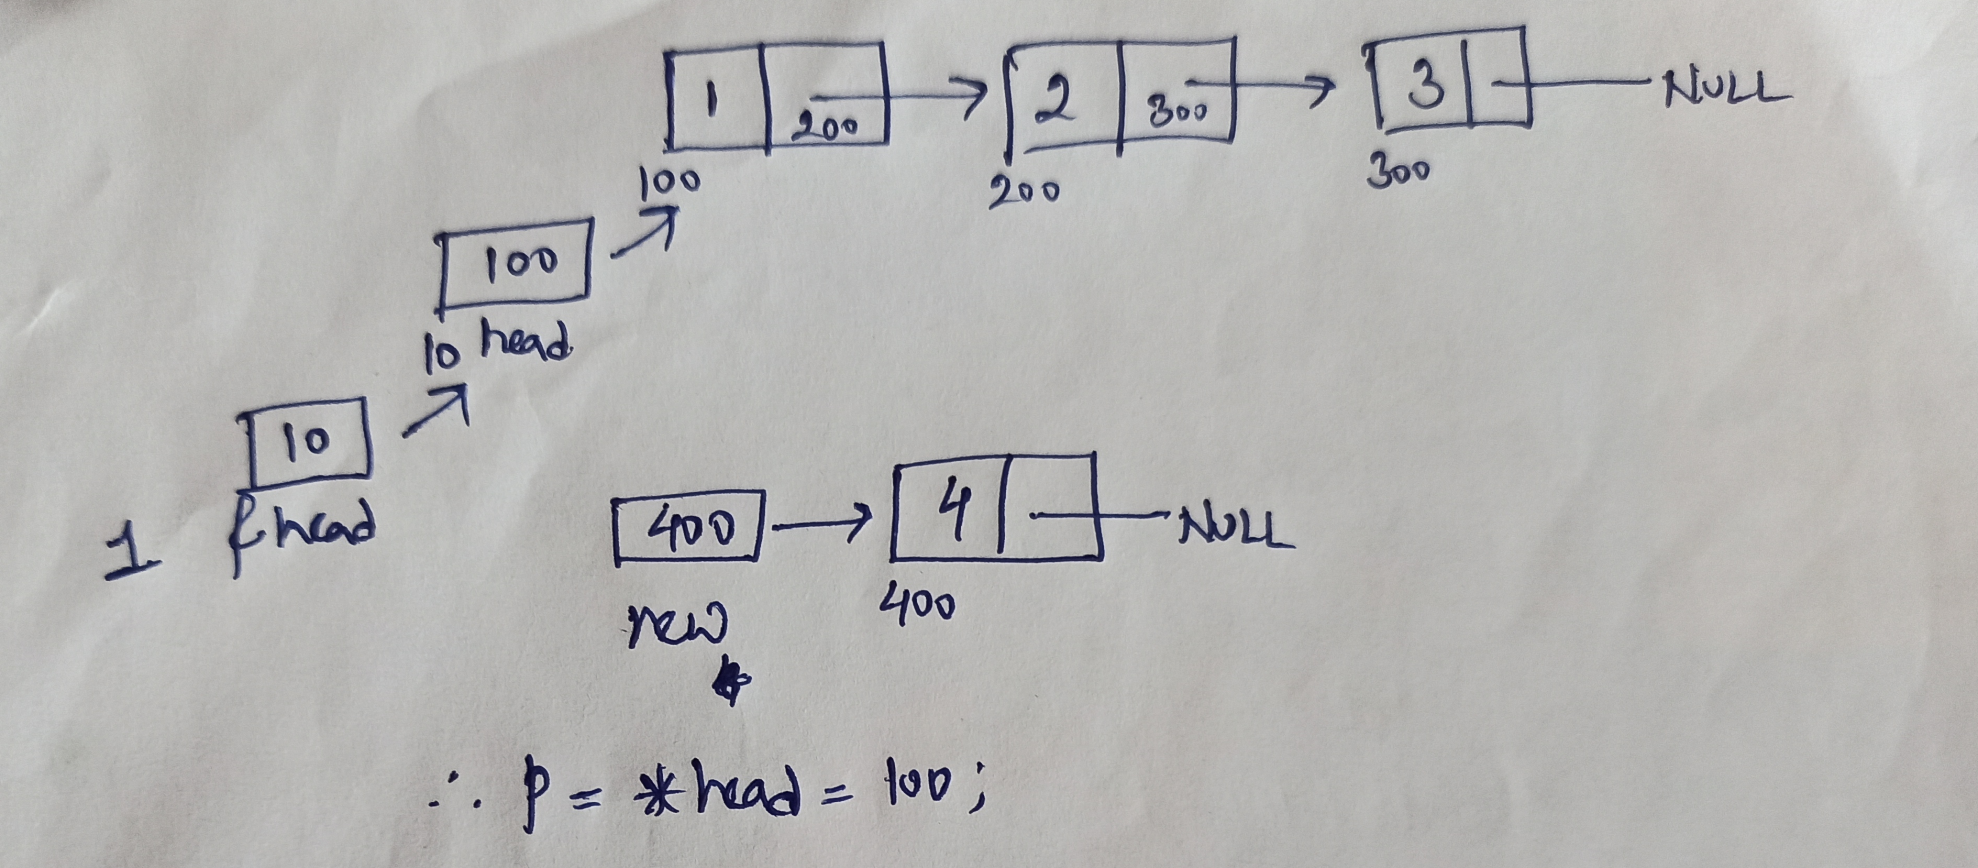 1 200 2 300 3 NULL
100 200 300
100
10 head
10
1 &head
400 4 NULL
new 400
∴ p = *head = 100;